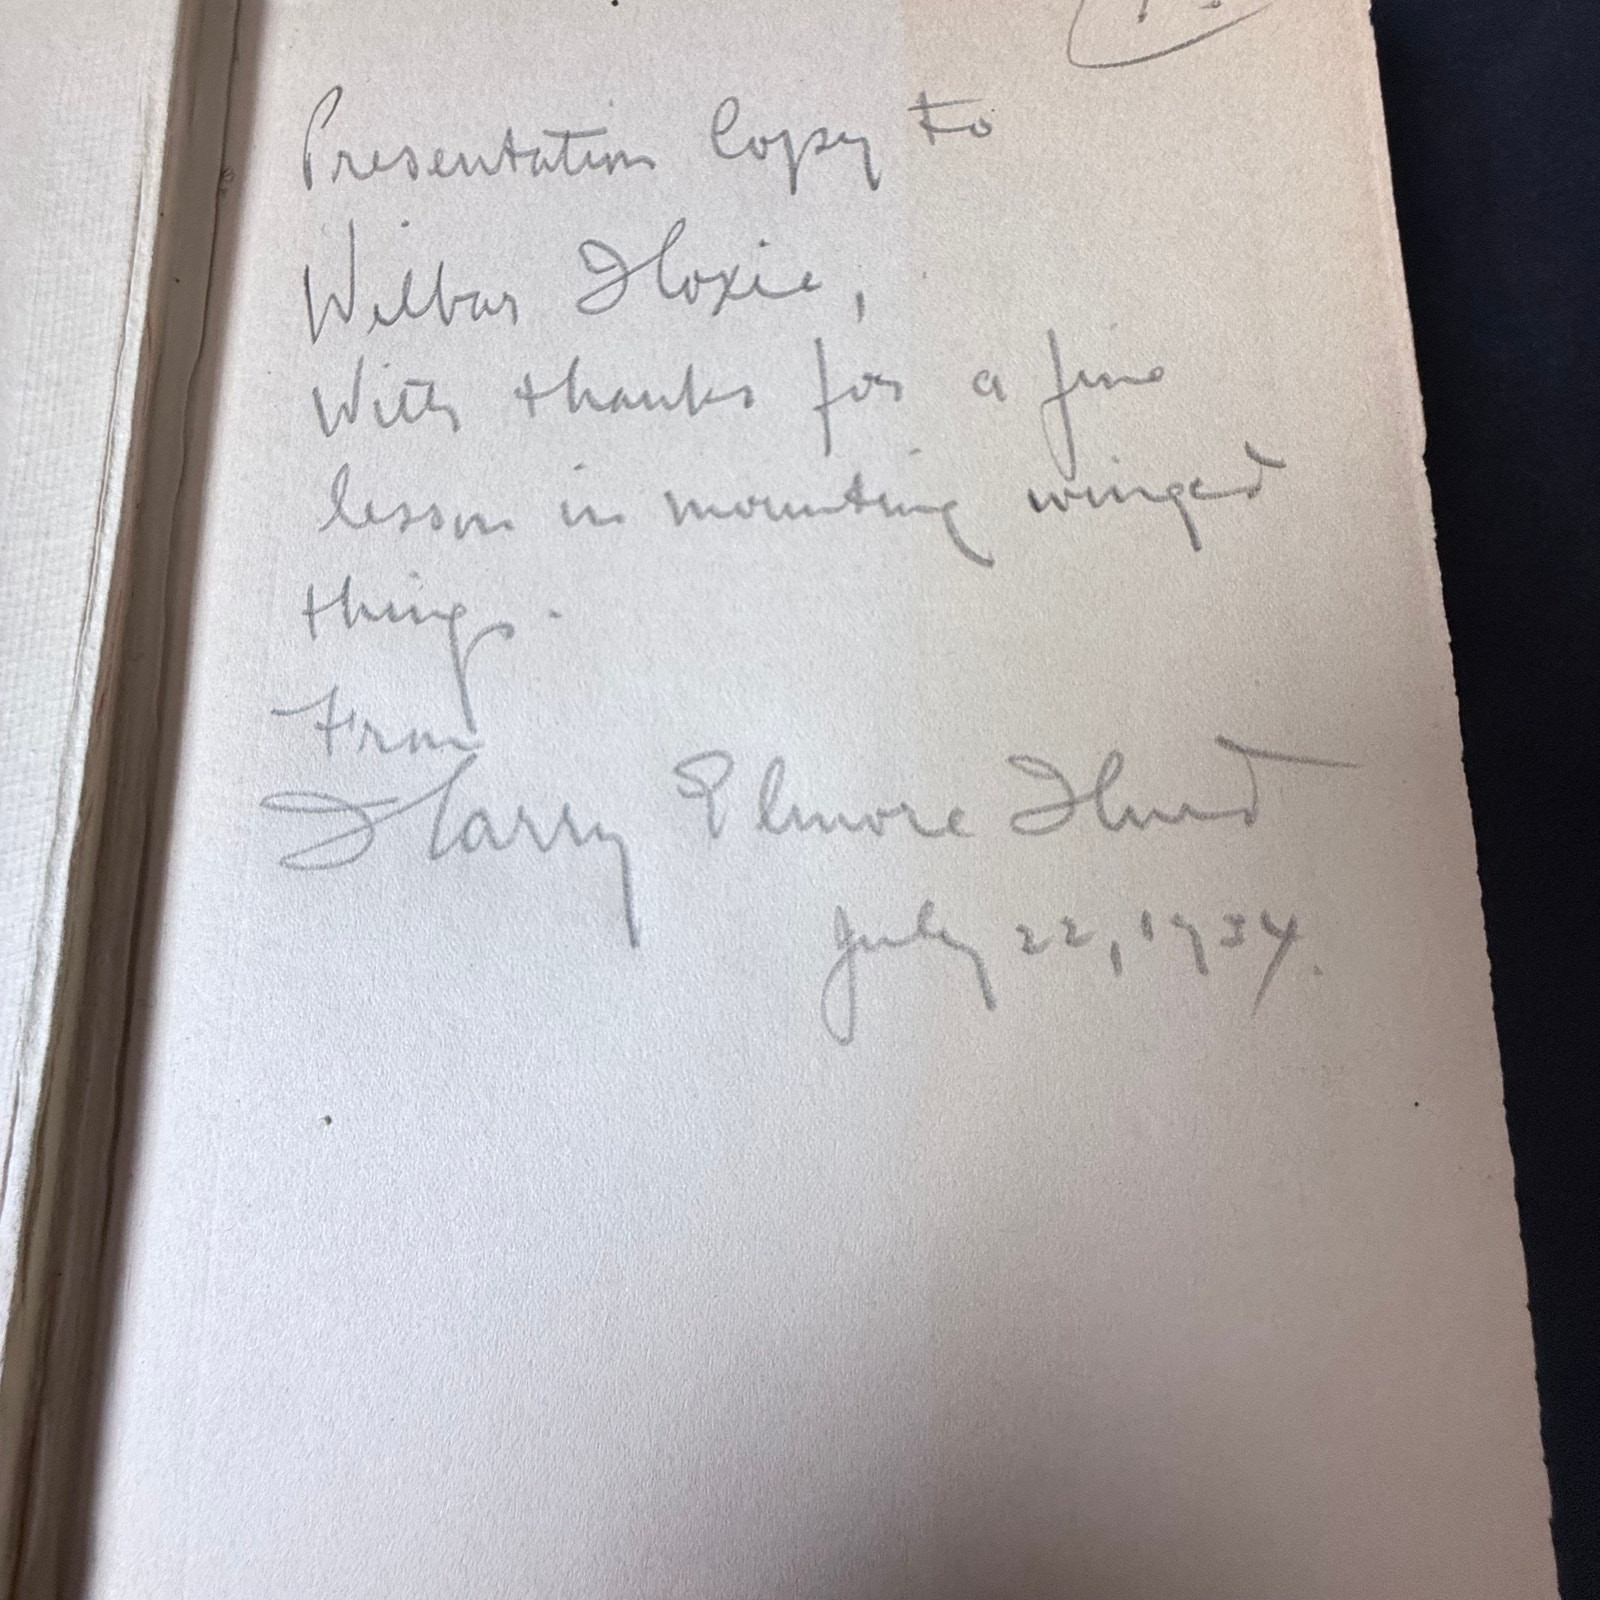 Presentation Copy to
Wilbur Hoxie,
With thanks for a fine
lesson in mounting winged
things.
From
Harry Elmore Hurd
July 22, 1934.